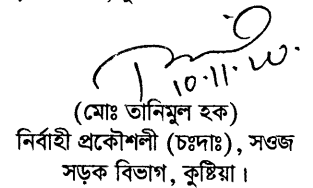 ১০.১১.২০.
(মোঃ তানিমুল হক)
নির্বাহী প্রকৌশলী (চঃদাঃ), সওজ
সড়ক বিভাগ, কুষ্টিয়া।